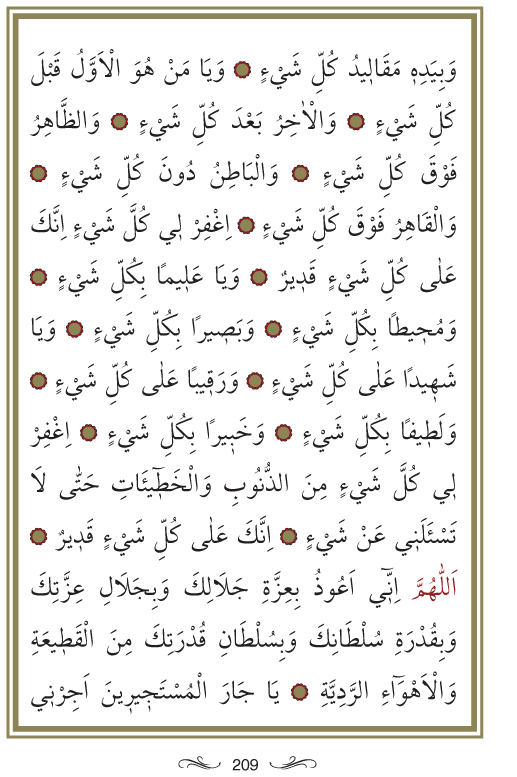 وَبِيَدِهٖ مَقَالٖيدُ كُلِّ شَيْءٍ ۞ وَيَا مَنْ هُوَ الْاَوَّلُ قَبْلَ
كُلِّ شَيْءٍ ۞ وَالْاٰخِرُ بَعْدَ كُلِّ شَيْءٍ ۞ وَالظَّاهِرُ
فَوْقَ كُلِّ شَيْءٍ ۞ وَالْبَاطِنُ دُونَ كُلِّ شَيْءٍ ۞
وَالْقَاهِرُ فَوْقَ كُلِّ شَيْءٍ ۞ اِغْفِرْ لٖي كُلَّ شَيْءٍ اِنَّكَ
عَلٰى كُلِّ شَيْءٍ قَدٖيرٌ ۞ وَيَا عَلٖيمًا بِكُلِّ شَيْءٍ ۞
وَمُحٖيطًا بِكُلِّ شَيْءٍ ۞ وَبَصٖيرًا بِكُلِّ شَيْءٍ ۞ وَيَا
شَهٖيدًا عَلٰى كُلِّ شَيْءٍ ۞ وَرَقٖيبًا عَلٰى كُلِّ شَيْءٍ ۞
وَلَطٖيفًا بِكُلِّ شَيْءٍ ۞ وَخَبٖيرًا بِكُلِّ شَيْءٍ ۞ اِغْفِرْ
لٖي كُلَّ شَيْءٍ مِنَ الذُّنُوبِ وَالْخَطٖٓيئَاتِ حَتّٰى لَا
تَسْئَلَنٖي عَنْ شَيْءٍ ۞ اِنَّكَ عَلٰى كُلِّ شَيْءٍ قَدٖيرٌ ۞
اَللّٰهُمَّ اِنّٖٓي اَعُوذُ بِعِزَّةِ جَلَالِكَ وَبِجَلَالِ عِزَّتِكَ
وَبِقُدْرَةِ سُلْطَانِكَ وَبِسُلْطَانِ قُدْرَتِكَ مِنَ الْقَطٖيعَةِ
وَالْاَهْوَٓاءِ الرَّدِيَّةِ ۞ يَا جَارَ الْمُسْتَجٖيرٖينَ اَجِرْنٖي
209